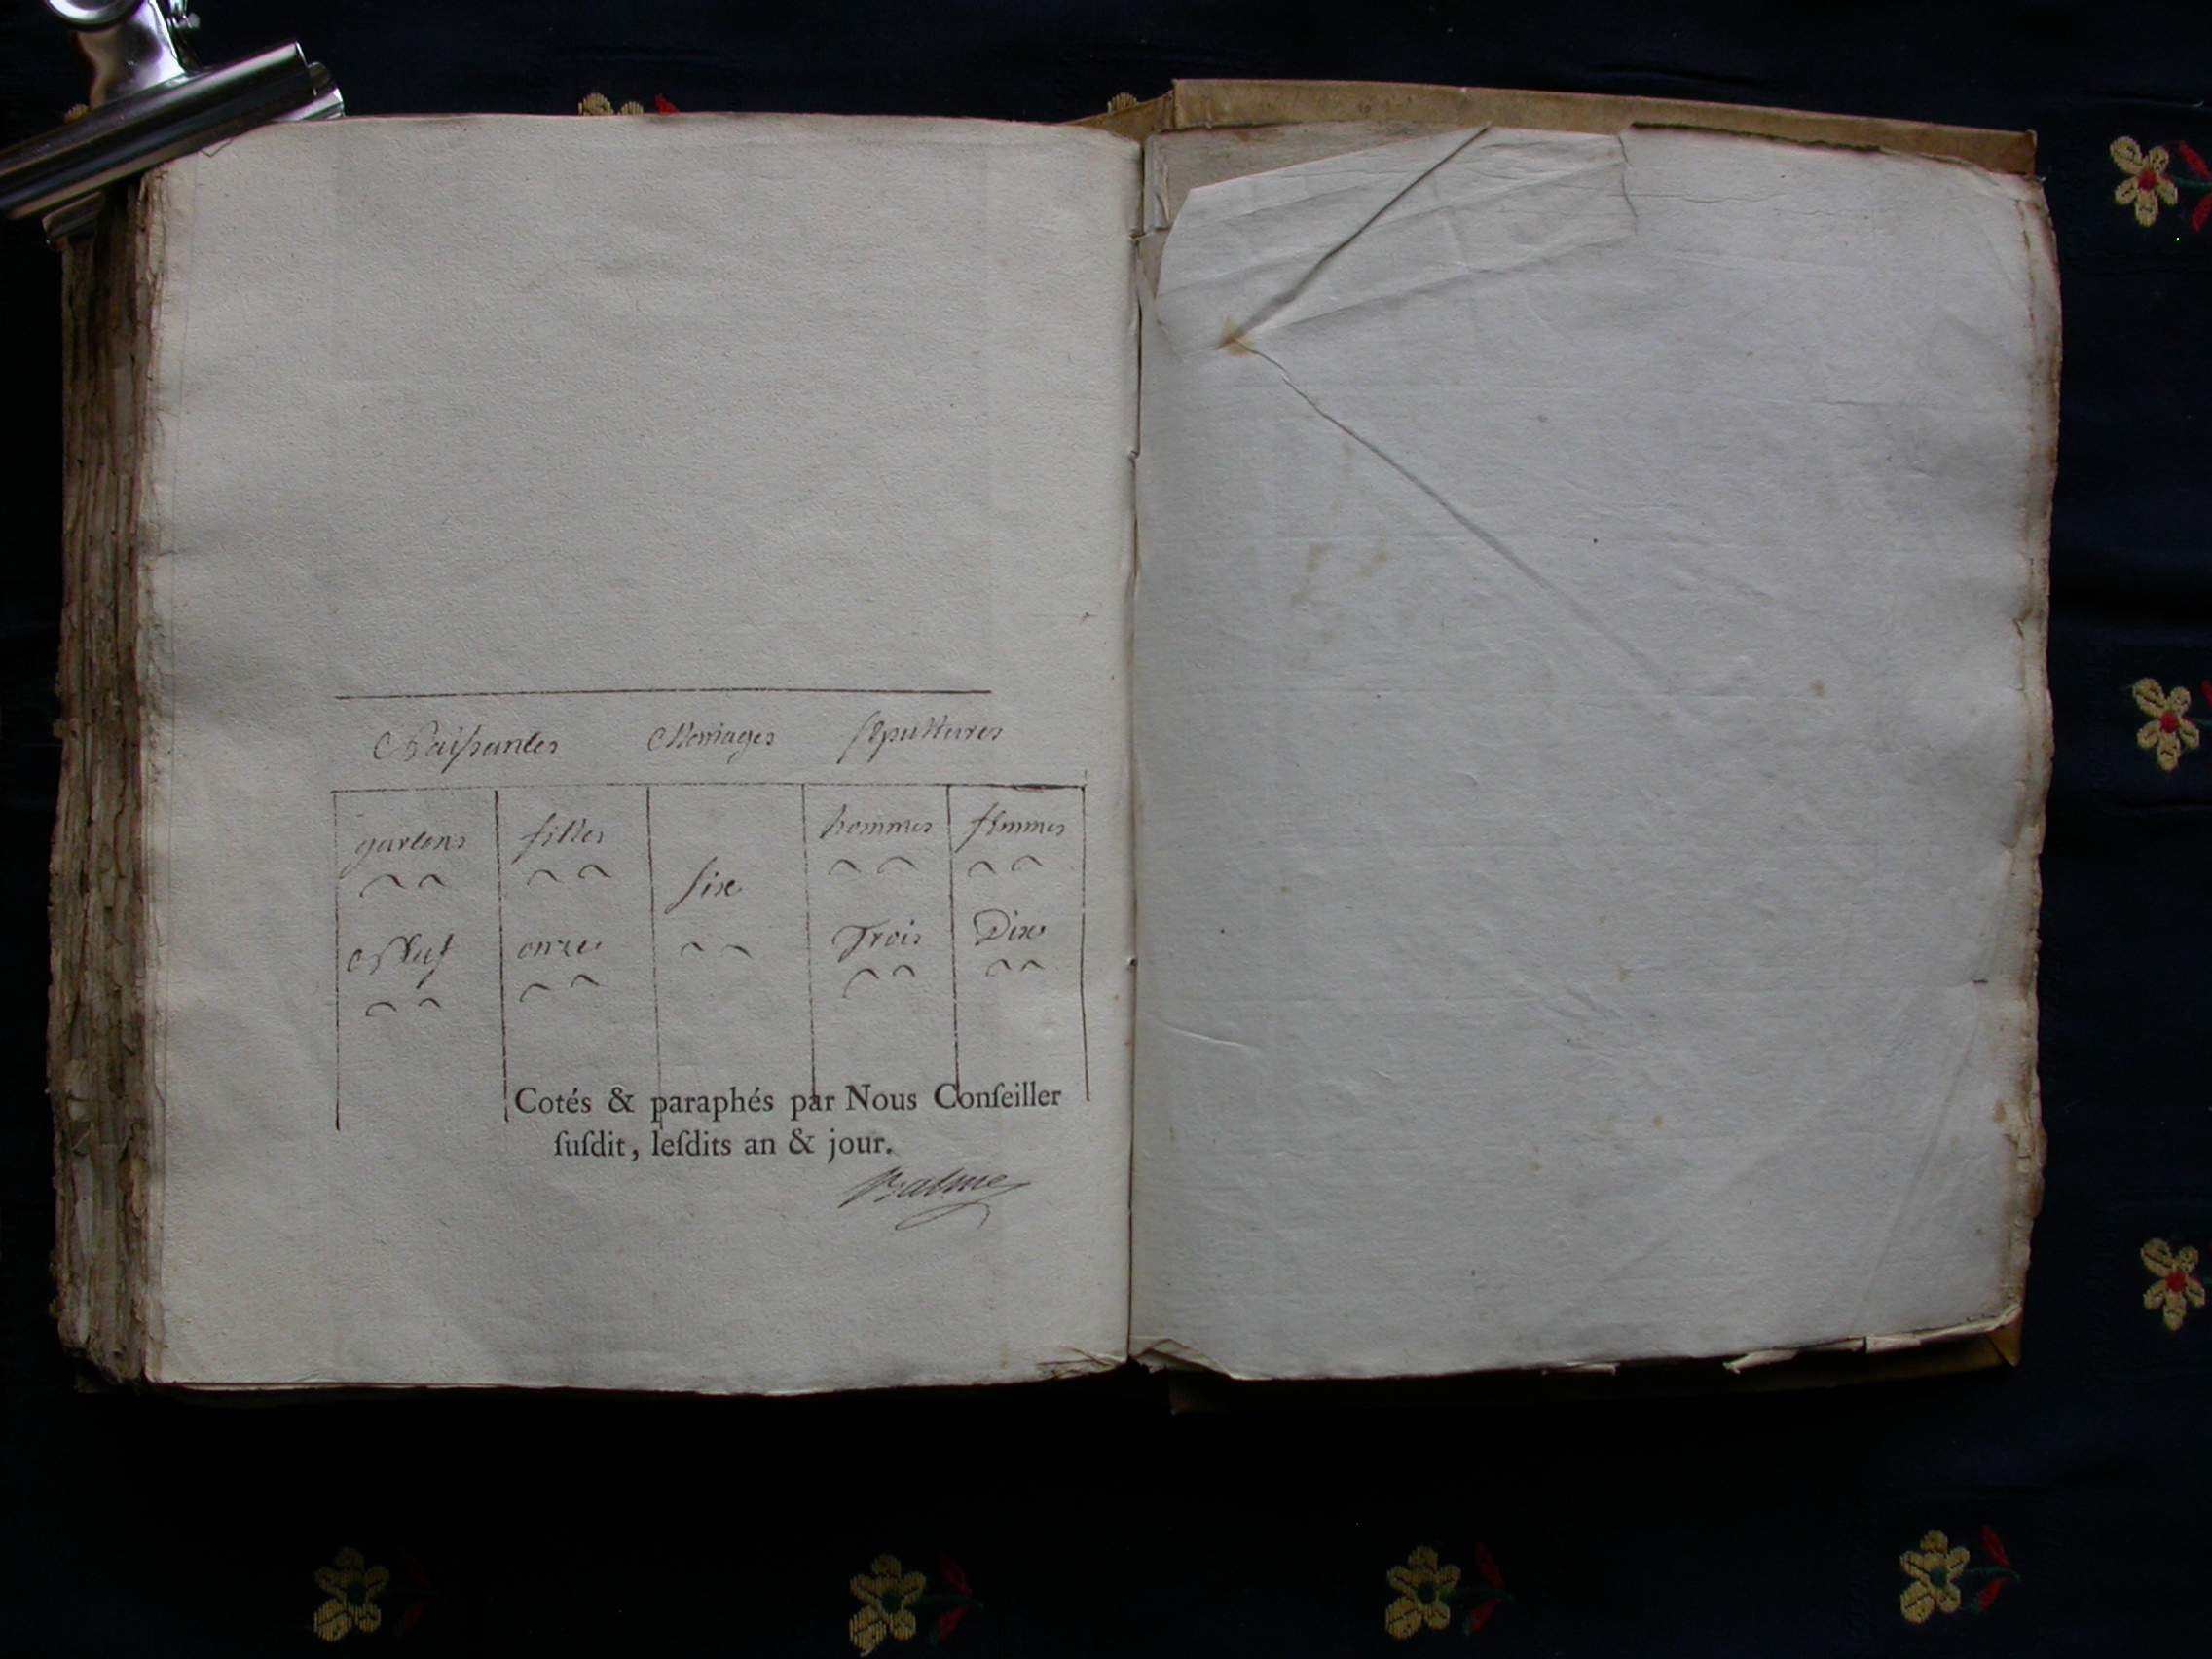 Naissances Mariages sepultures
garcons filles hommes femmes
six
Neuf onze Trois Dix
Cotés & paraphés par Nous Conſeiller
ſuſdit, leſdits an & jour.